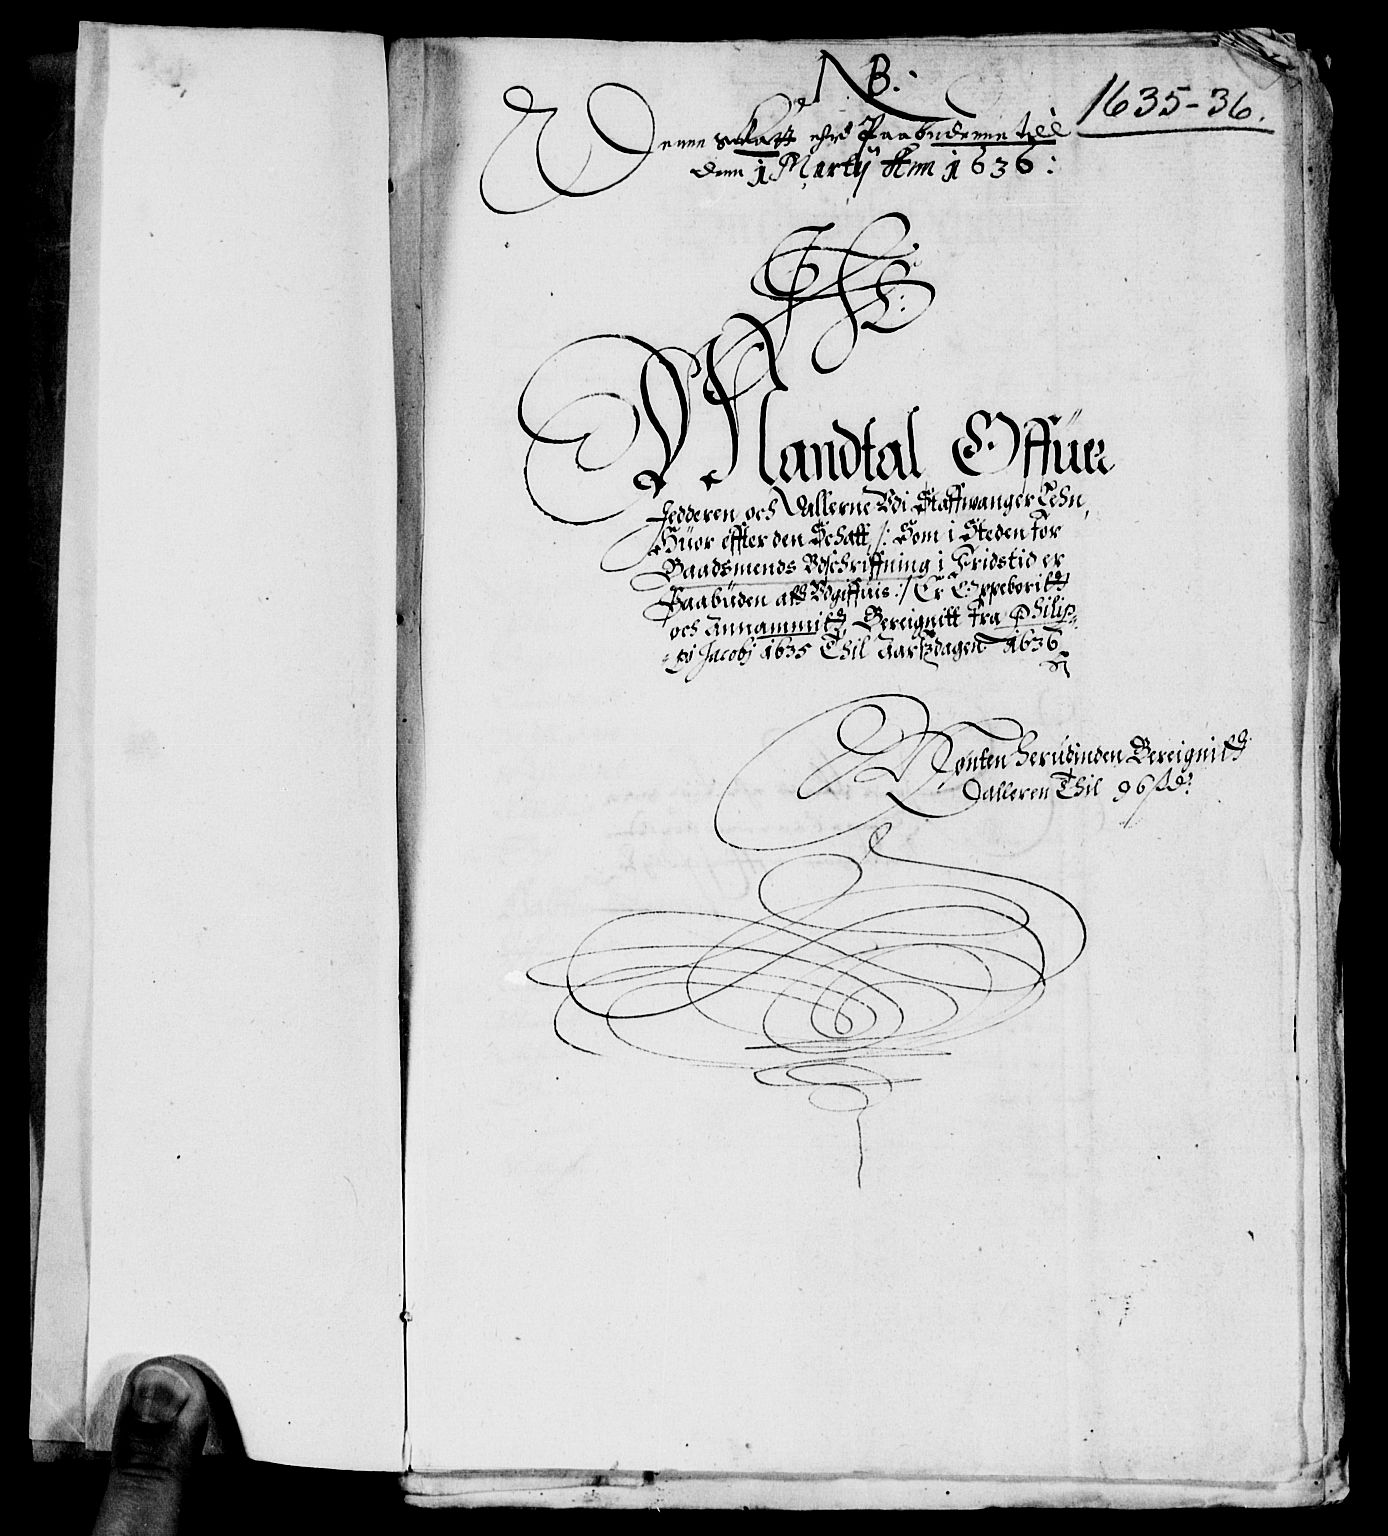 NB:
1635-36.
Denne schatt ehre Paabudenn till
denn 1 Martij Ann 1636:
Mandtal Offuer
Jedderen och Dallerne Vdi Staffwanger Lehn,
Huor effter den Schatt /: Som i Steden for
Baadsmends Vdschriffning i Fridstid er
Paabuden att Vdgiffuis :/ Er Oppeboritt
och Annammitt, Bereignitt fra Philip=
=pi Jacobj 1635 Thil Aarszdagen 1636
Penten herudinden Bereignitt
Dalleren Thil 96 sk.